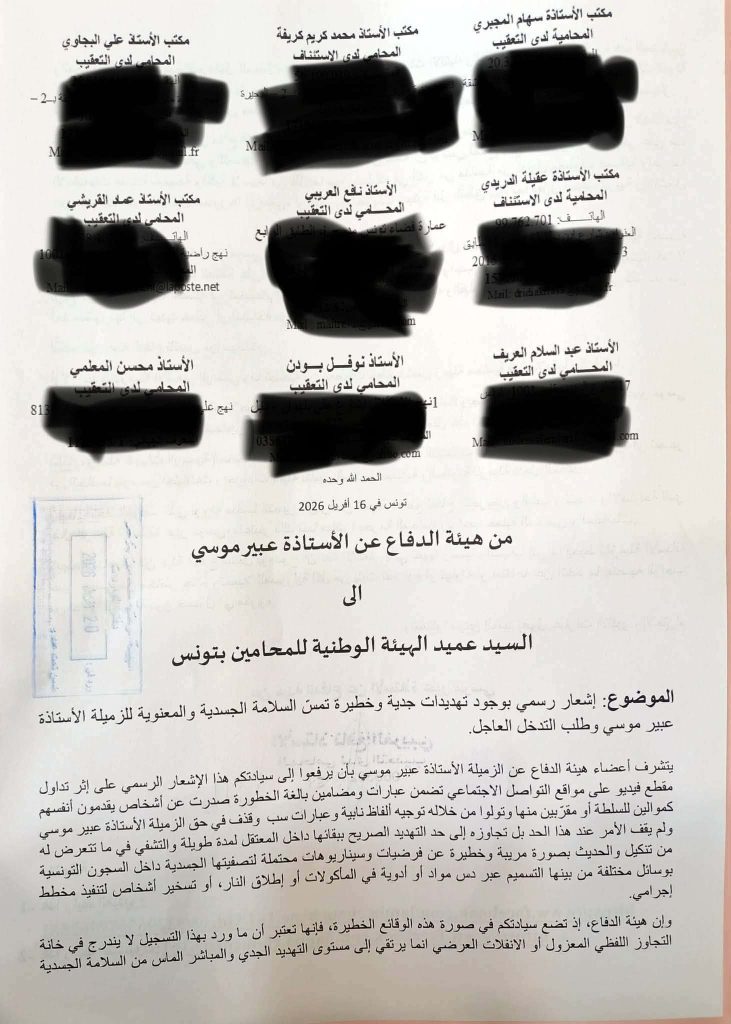 مكتب الأستاذة سهام المجبري
المحامية لدى التعقيب
مكتب الأستاذ محمد كريم كريفة
المحامي لدى الاستئناف
مكتب الأستاذ علي البجاوي
المحامي لدى التعقيب
مكتب الأستاذة عقيلة الدريدي
المحامية لدى الاستئناف
الأستاذ نافع العريبي
المحـــامي لدى التعقيب
مكتب الأستاذ عماد القريشي
المحامي لدى التعقيب
الأستاذ عبد السلام العريف
المحـــامي لدى التعقيب
الأستاذ نوفـــل بـــودن
المحامي لدى التعقيب
الأستاذ محسن المعلمي
المحامي لدى التعقيب
الحمد الله وحده
تونس في 16 أفريل 2026
من هيئة الدفاع عن الأستاذة عبير موسي
الى
السيد عميد الهيئة الوطنية للمحامين بتونس
الموضوع: إشعار رسمي بوجود تهديدات جدية وخطيرة تمسّ السلامة الجسدية والمعنوية للزميلة الأستاذة
عبير موسي وطلب التدخل العاجل.
يتشرف أعضاء هيئة الدفاع عن الزميلة الأستاذة عبير موسي بأن يرفعوا إلى سيادتكم هذا الإشعار الرسمي على إثر تداول
مقطع فيديو على مواقع التواصل الاجتماعي تضمن عبارات ومضامين بالغة الخطورة صدرت عن أشخاص يقدمون أنفسهم
كموالين للسلطة أو مقرّبين منها وتولوا من خلاله توجيه ألفاظ نابية وعبارات سب وقذف في حق الزميلة الأستاذة عبير موسي
ولم يقف الأمر عند هذا الحد بل تجاوزه إلى حد التهديد الصريح ببقائها داخل المعتقل لمدة طويلة والتشفي في ما تتعرض له
من تنكيل والحديث بصورة مريبة وخطيرة عن فرضيات وسيناريوهات محتملة لتصفيتها الجسدية داخل السجون التونسية
بوسائل مختلفة من بينها التسميم عبر دس مواد أو أدوية في المأكولات أو إطلاق النار، أو تسخير أشخاص لتنفيذ مخطط
إجرامي.
وإن هيئة الدفاع، إذ تضع سيادتكم في صورة هذه الوقائع الخطيرة، فإنها تعتبر أن ما ورد بهذا التسجيل لا يندرج في خانة
التجاوز اللفظي المعزول أو الانفلات العرضي انما يرتقي إلى مستوى التهديد الجدي والمباشر الماس من السلامة الجسدية